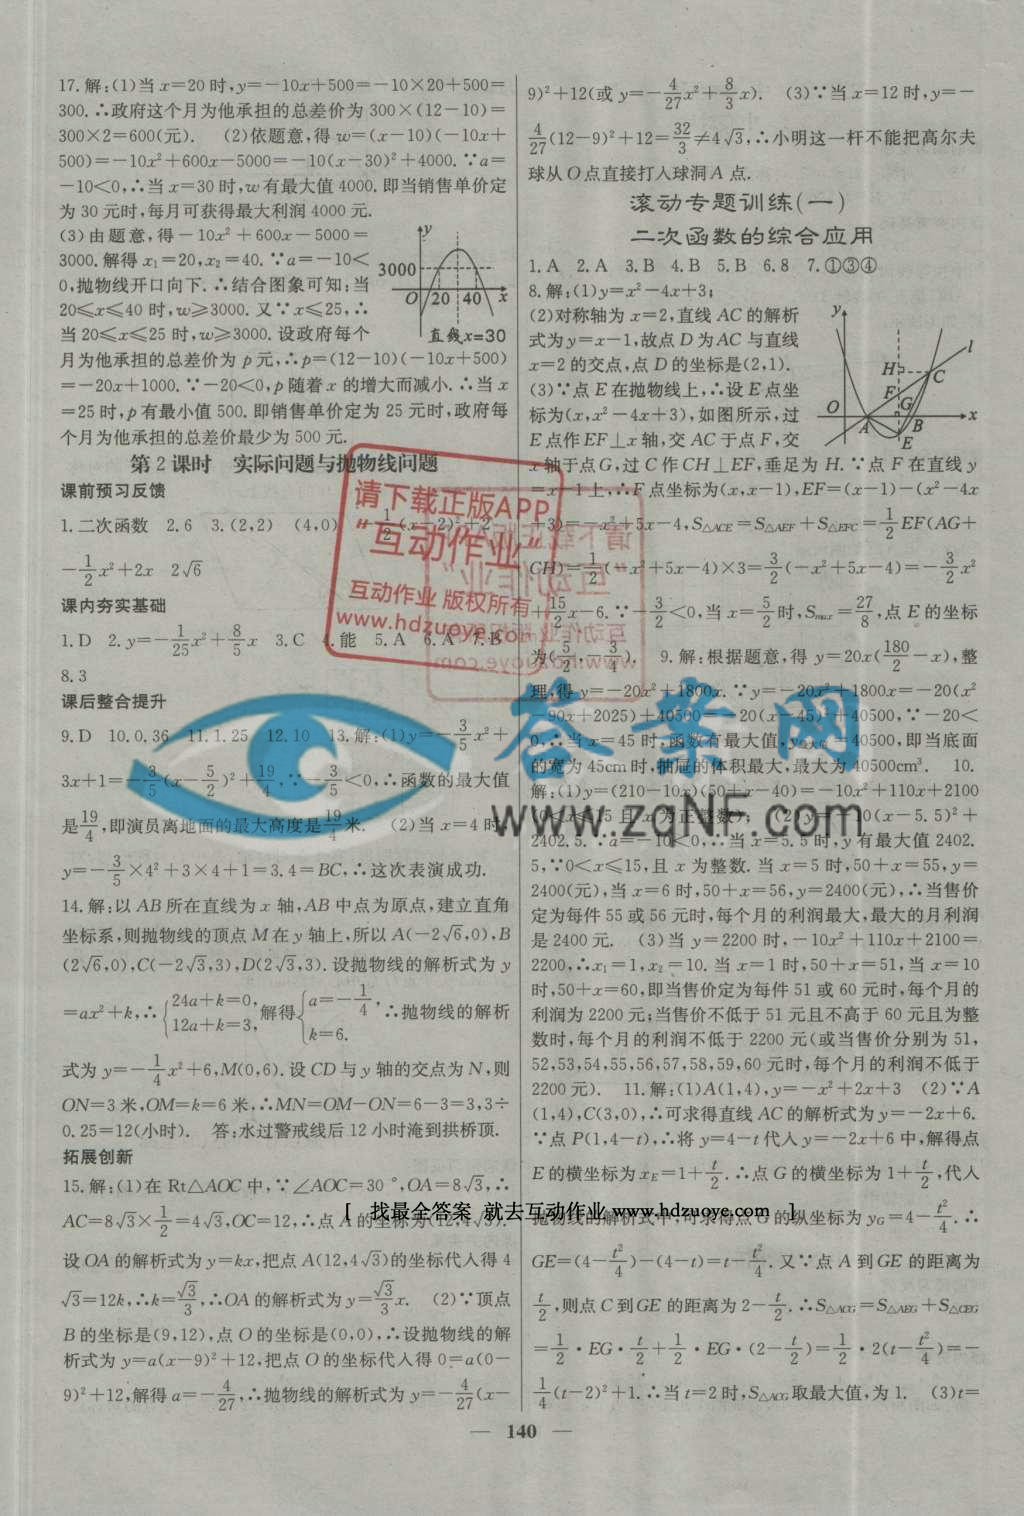 17.解:(1)当 x=20 时,y=-10x+500=-10×20+500=
300.∴政府这个月为他承担的总差价为 300×(12-10)=
300×2=600(元). (2)依题意,得 w=(x-10)(-10x+
500)=-10x²+600x-5000=-10(x-30)²+4000.∵a=
-10<0,∴当 x=30 时,w有最大值 4000.即当销售单价定
为 30 元时,每月可获得最大利润 4000 元.
(3)由题意,得-10x²+600x-5000=
3000.解得 x₁=20,x₂=40.∵a=-10<
0,抛物线开口向下.∴结合图象可知:当
20≤x≤40 时,w≥3000.又∵x≤25,∴
当 20≤x≤25 时,w≥3000.设政府每个
月为他承担的总差价为 p 元,∴p=(12-10)(-10x+500)
=-20x+1000.∵-20<0,p 随着 x 的增大而减小.∴当 x
=25 时,p 有最小值 500.即销售单价定为 25 元时,政府每
个月为他承担的总差价最少为 500 元.
y
3000
O 20 40 x
直线x=30
第 2 课时 实际问题与抛物线问题
课前预习反馈
1.二次函数 2.6 3.(2,2) (4,0) -1/2(x-2)²+2
-1/2x²+2x 2√6
课内夯实基础
1.D 2.y=-1/25x²+8/5x 3.C 4.能 5.A 6.A 7.B
8.3
课后整合提升
9.D 10.0.36 11.1.25 12.10 13.解:(1)y=-3/5x²+
3x+1=-3/5(x-5/2)²+19/4,∵-3/5<0,∴函数的最大值
是19/4,即演员离地面的最大高度是19/4米. (2)当 x=4 时,
y=-3/5×4²+3×4+1=3.4=BC,∴这次表演成功.
14.解:以 AB 所在直线为 x 轴,AB 中点为原点,建立直角
坐标系,则抛物线的顶点 M 在 y 轴上,所以 A(-2√6,0),B
(2√6,0),C(-2√3,3),D(2√3,3).设抛物线的解析式为 y
=ax²+k,∴{24a+k=0, 12a+k=3, 解得{a=-1/4, k=6. ∴抛物线的解析
式为 y=-1/4x²+6,M(0,6).设 CD 与 y 轴的交点为 N,则
ON=3 米,OM=k=6 米,∴MN=OM-ON=6-3=3,3÷
0.25=12(小时). 答:水过警戒线后 12 小时淹到拱桥顶.
拓展创新
15.解:(1)在 Rt△AOC 中,∵∠AOC=30°,OA=8√3,∴
AC=8√3×1/2=4√3,OC=12,∴点 A 的坐标为(12,4√3).
设 OA 的解析式为 y=kx,把点 A(12,4√3)的坐标代入得 4
√3=12k,∴k=√3/3,∴OA 的解析式为 y=√3/3x. (2)∵顶点
B 的坐标是(9,12),点 O 的坐标是(0,0),∴设抛物线的解
析式为 y=a(x-9)²+12,把点 O 的坐标代入得 0=a(0-
9)²+12,解得 a=-4/27,∴抛物线的解析式为 y=-4/27(x-
9)²+12(或 y=-4/27x²+8/3x). (3)∵当 x=12 时,y=-
4/27(12-9)²+12=32/3≠4√3,∴小明这一杆不能把高尔夫
球从 O 点直接打入球洞 A 点.
滚动专题训练(一)
二次函数的综合应用
1.A 2.A 3.B 4.B 5.B 6.8 7.①③④
8.解:(1)y=x²-4x+3;
(2)对称轴为 x=2,直线 AC 的解析
式为 y=x-1,故点 D 为 AC 与直线
x=2 的交点,点 D 的坐标是(2,1).
(3)∵点 E 在抛物线上,∴设 E 点坐
标为(x,x²-4x+3),如图所示,过
E 点作 EF⊥x 轴,交 AC 于点 F,交
y
l
H
C
F
G
O A B x
E
x 轴于点 G,过 C 作 CH⊥EF,垂足为 H.∵点 F 在直线 y
=x-1 上,∴F 点坐标为(x,x-1),EF=(x-1)-(x²-4x
+3)=-x²+5x-4,S△ACE=S△AEF+S△EFC=1/2EF(AG+
CH)=1/2(-x²+5x-4)×3=3/2(-x²+5x-4)=-3/2x²
+15/2x-6.∵-3/2<0,当 x=5/2时,Smax=27/8,点 E 的坐标
为(5/2,-3/4). 9.解:根据题意,得 y=20x(180/2-x),整
理,得 y=-20x²+1800x.∵y=-20x²+1800x=-20(x²
-90x+2025)+40500=-20(x-45)²+40500,∵-20<
0,∴当 x=45 时,函数有最大值,y最大值=40500,即当底面
的宽为 45cm时,抽屉的体积最大,最大为 40500cm³. 10.
解:(1)y=(210-10x)(50+x-40)=-10x²+110x+2100
(0<x≤15 且 x 为正整数); (2)y=-10(x-5.5)²+
2402.5.∵a=-10<0,∴当 x=5.5 时,y 有最大值 2402.
5,∵0<x≤15,且 x 为整数.当 x=5 时,50+x=55,y=
2400(元),当 x=6 时,50+x=56,y=2400(元),∴当售价
定为每件 55 或 56 元时,每个月的利润最大,最大的月利润
是 2400 元. (3)当 y=2200 时,-10x²+110x+2100=
2200,∴x₁=1,x₂=10.当 x=1 时,50+x=51,当 x=10
时,50+x=60,即当售价定为每件 51 或 60 元时,每个月的
利润为 2200 元;当售价不低于 51 元且不高于 60 元且为整
数时,每个月的利润不低于 2200 元(或当售价分别为 51,
52,53,54,55,56,57,58,59,60 元时,每个月的利润不低于
2200 元). 11.解:(1)A(1,4),y=-x²+2x+3 (2)∵A
(1,4),C(3,0),∴可求得直线 AC 的解析式为 y=-2x+6.
∵点 P(1,4-t),∴将 y=4-t 代入 y=-2x+6 中,解得点
E 的横坐标为 xE=1+t/2.∴点 G 的横坐标为 1+t/2,代入
抛物线的解析式中,可求得点 G 的纵坐标为 yG=4-t²/4.∴
GE=(4-t²/4)-(4-t)=t-t²/4.又∵点 A 到 GE 的距离为
t/2,则点 C 到 GE 的距离为 2-t/2.∴S△ACG=S△AEG+S△CEG
=1/2·EG·t/2+1/2·EG·(2-t/2)=1/2·2(t-t²/4)=-
1/4(t-2)²+1.∴当 t=2 时,S△ACG取最大值,为 1. (3)t=
— 140 —
请下载正版APP
“互动作业”
互动作业 版权所有
www.hdzuoye.com
答案网
www.zqNF.com
[ 找最全答案 就去互动作业 www.hdzuoye.com ]